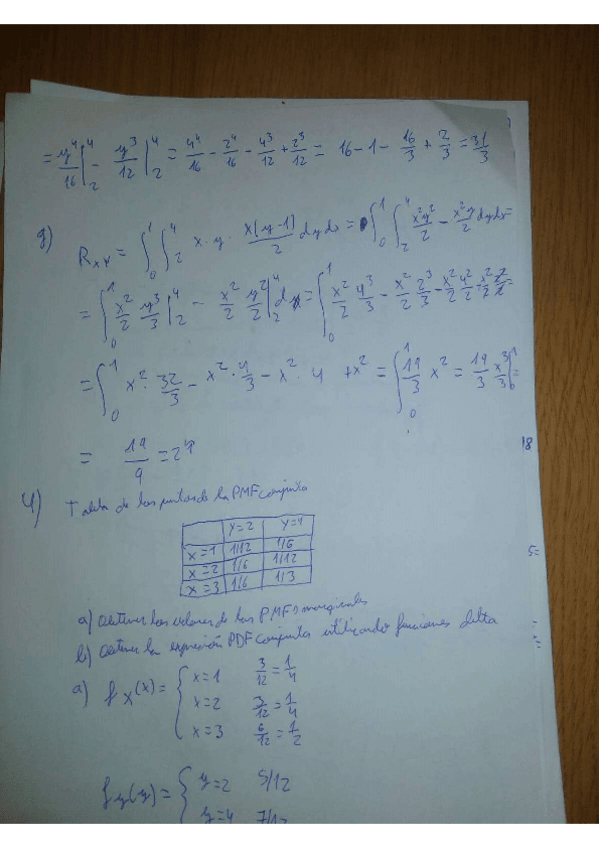 = y⁴/16 |₂⁴ - y³/12 |₂⁴ = 4⁴/16 - 2⁴/16 - 4³/12 + 2³/12 = 16-1- 16/3 + 2/3 = 31/3
g) R_XY = ∫₀¹ ∫₂⁴ x·y· x(y-1)/2 dydx = ∫₀¹ ∫₂⁴ x²y²/2 - x²y/2 dydx =
= ∫₀¹ x²/2 y³/3 |₂⁴ - x²/2 y²/2 |₂⁴ dx = ∫₀¹ x²/2 4³/3 - x²/2 2³/3 - x²/2 4²/2 + x²/2 2²/2 =
= ∫₀¹ x²· 32/3 - x²· 4/3 - x²· 4 + x² = ∫₀¹ 19/3 x² = 19/3 x³/3 |₀¹ =
= 19/9 = 2
18
4) Tabla de los puntos de la PMF conjunta
Y=2 Y=4
X=1 1/12 1/6
X=2 1/6 1/12
X=3 1/6 1/3
5=
a) Obtener los valores de las PMFs marginales
b) Obtener la expresión PDF conjunta utilizando funciones delta
a) f_X(x) = { x=1 3/12 = 1/4
x=2 3/12 = 1/4
x=3 6/12 = 1/2
f_Y(y) = { y=2 5/12
y=4 7/12